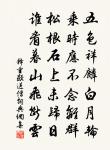 五色祥麟白月輪
乘時應不念離群
松根石上未歸日
誰看暮山飛斷雲
釋重顯送僧